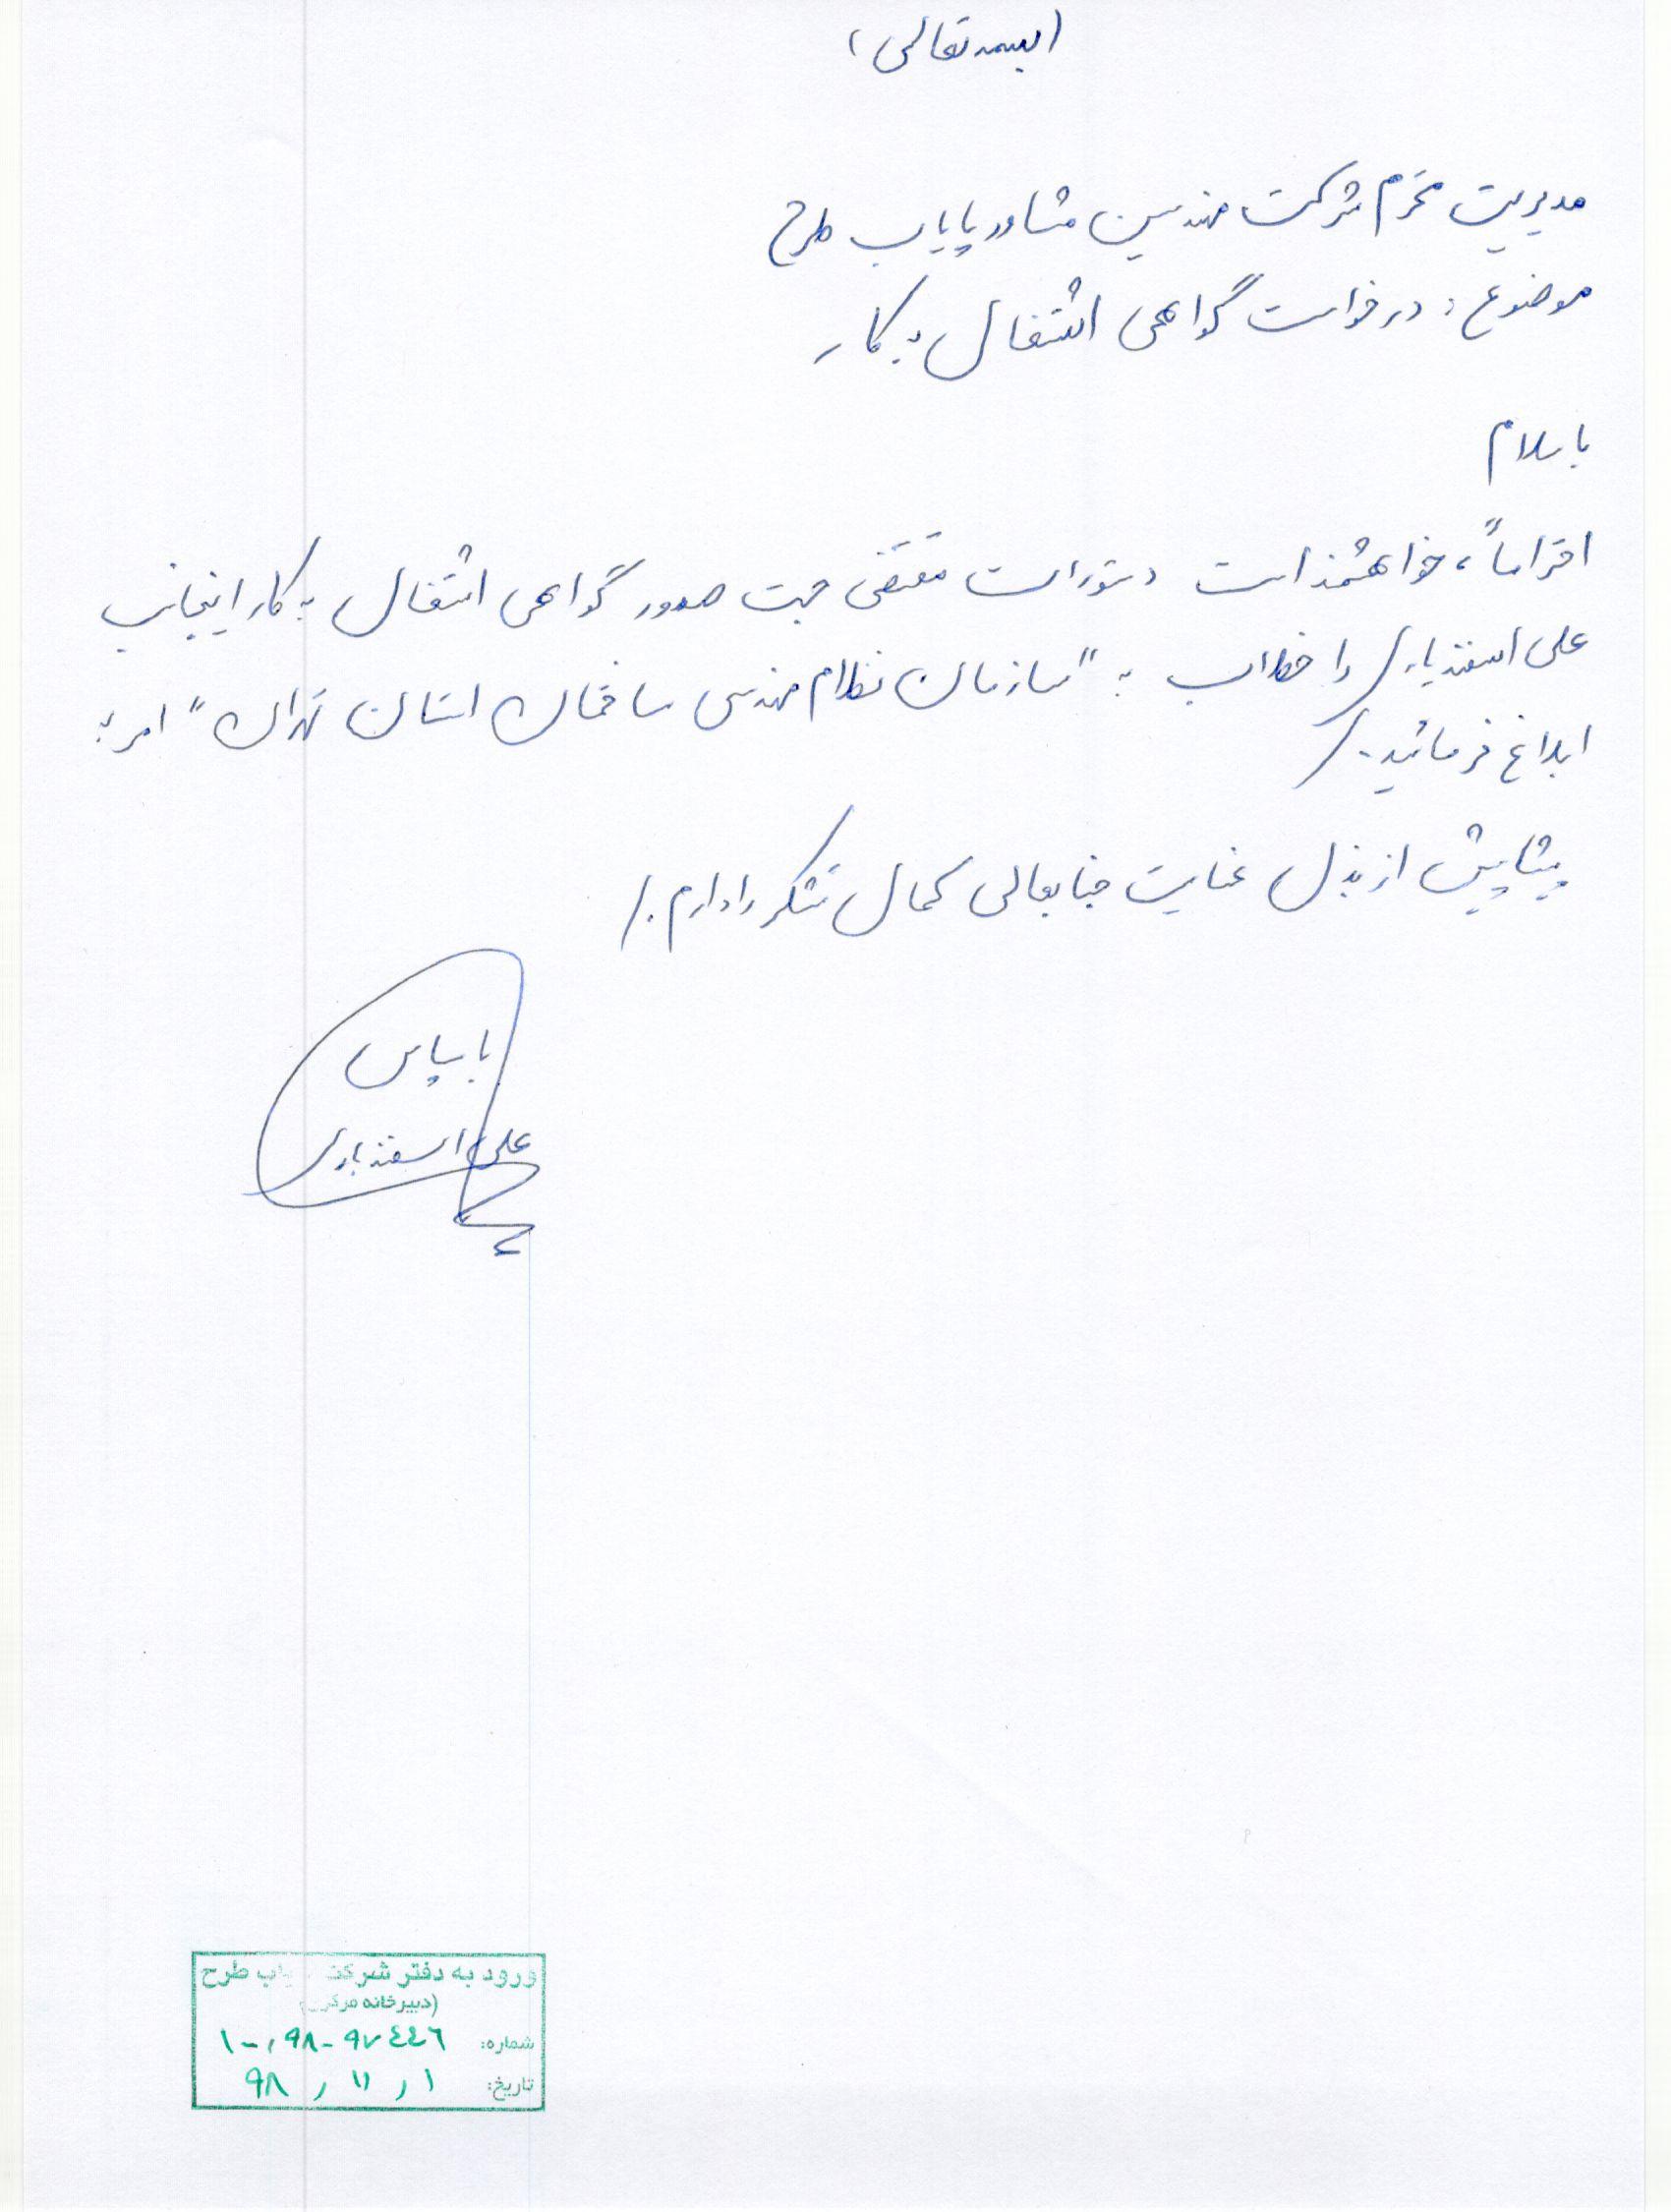 (بسمه تعالی)
مدیریت محترم شرکت مهندسین مشاور پایاب طرح
موضوع: درخواست گواهی اشتغال به کار
با سلام
احتراماً، خواهشمند است دستورات مقتضی جهت صدور گواهی اشتغال به کار اینجانب
علی اسفندیاری را خطاب به "سازمان نظام مهندسی ساختمان استان تهران" امر به
ابلاغ فرمائید./
پیشاپیش از بذل عنایت جنابعالی کمال تشکر را دارم./
با سپاس
علی اسفندیاری
ورود به دفتر شرکت یاب طرح
(دبیرخانه مرکزی)
شماره: ۱-۹۸٫-۹۷۴۴۶
تاریخ: ۹۸/۱۱/۱